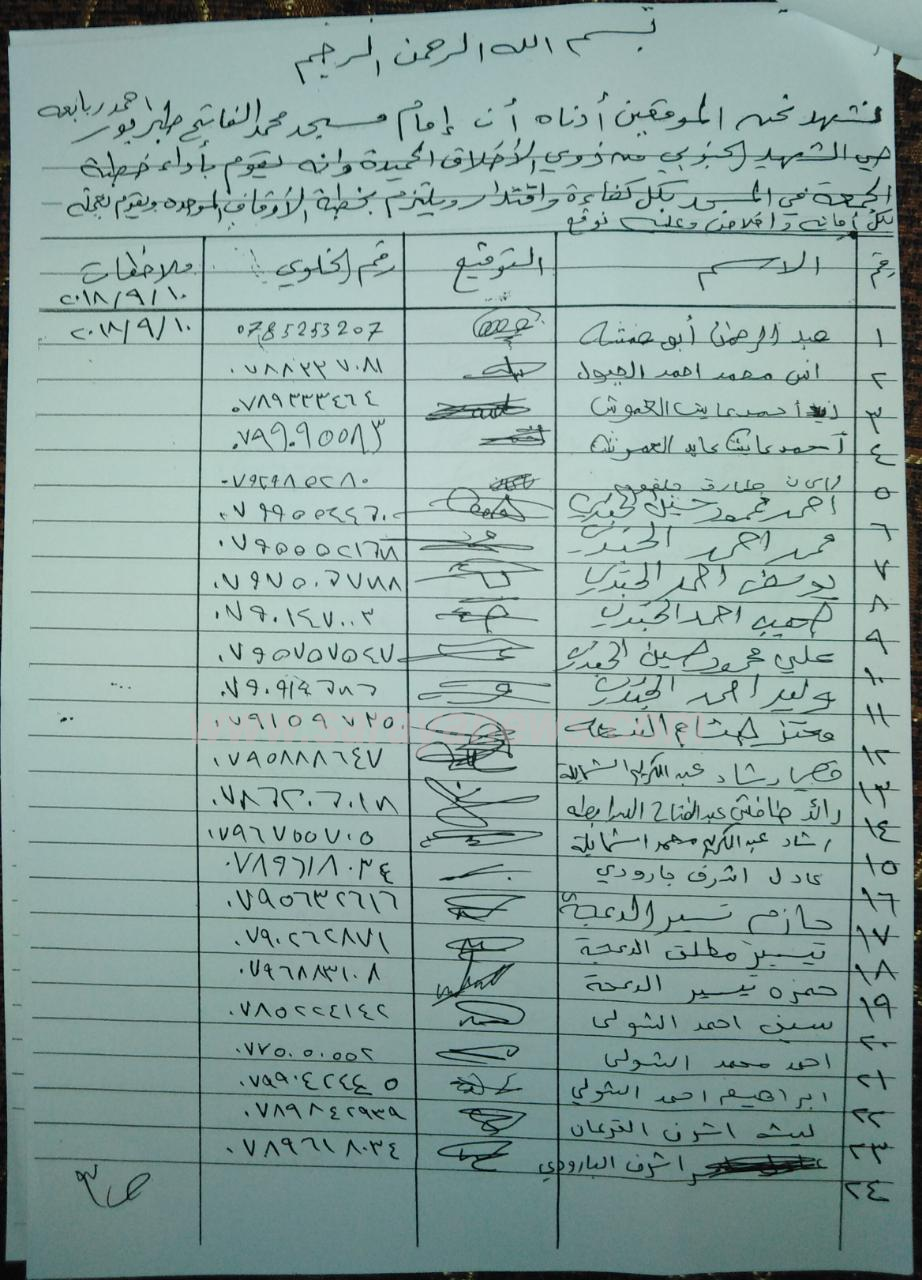 بسم الله الرحمن الرحيم
نشهد نحن الموقعين أدناه أن إمام مسجد محمد الفاتح طبربور احمد ربابعه
حي الشهيد الجنوبي من ذوي الأخلاق الحميدة وانه يقوم بأداء خطبة
الجمعة في المسجد بكل كفاءة واقتدار ويلتزم بخطبة الأوقاف الموحده ويقوم بعمله
بكل أمانه واخلاص وعليه نوقع
رقم الاسم التوقيع رقم الخلوي ملاحظات
٢٠١٨/٩/١٠
١ عبد الرحمن أبو 0785253207 ٢٠١٨/٩/١٠
٢ انس محمد احمد ٠٧٨٨٣٣٧٠٨١
٣ زيد احمد عايش العموش ٠٧٨٩٣٣٣٤٦٤
٤ أحمد عايش عايد العموش ٠٧٩٩٠٩٥٥٨٣
٥ طارق ٠٧٩٢٩٨٥٢٨٠
٦ احمد محمود خليل الجندي
٧ محمد احمد الجندي
٨ يوسف احمد الجندي
٩ صهيب احمد الجندي ٠٧٩٠١٤٧٠٠٣
١٠ علي محمود حسين الجندي ٠٧٩٥٧٥٧٥٤٧
١١ وليد احمد الجندي
١٢ معتز هشام ٠٧٩١٥٩٧٣٥
www.sarayanews.com
١٣ رشاد عبد الكريم الشمايلة ٠٧٩٥٨٨٨٦٤٧
١٤ رائد عبد الفتاح ٠٧٨٦٢٠٦٠١٨
١٥ رشاد عبد الكريم محمد الشمايلة ٠٧٩٦٧٥٥٧٠٥
١٦ عادل اشرف بارودي ٠٧٨٩٦١٨٠٣٤
١٧ حازم تيسير الدعجة ٠٧٩٥٦٣٢٦١٦
١٨ تيسير مطلق الدعجة ٠٧٩٠٢٦٢٨٧١
١٩ حمزه تيسير الدعجة ٠٧٩٦٨٨٣١٠٨
٢٠ سيف احمد الشولي ٠٧٨٥٢٢٤١٤٢
٢١ احمد محمد الشولي
٢٢ ابراهيم احمد الشولي ٠٧٩٩٠٤٢٤٤٥
٢٣ ليث اشرف القرعان ٠٧٨٩٨٤٢٩٣٩
٢٤ اشرف البارودي ٠٧٨٩٦١٨٠٣٤